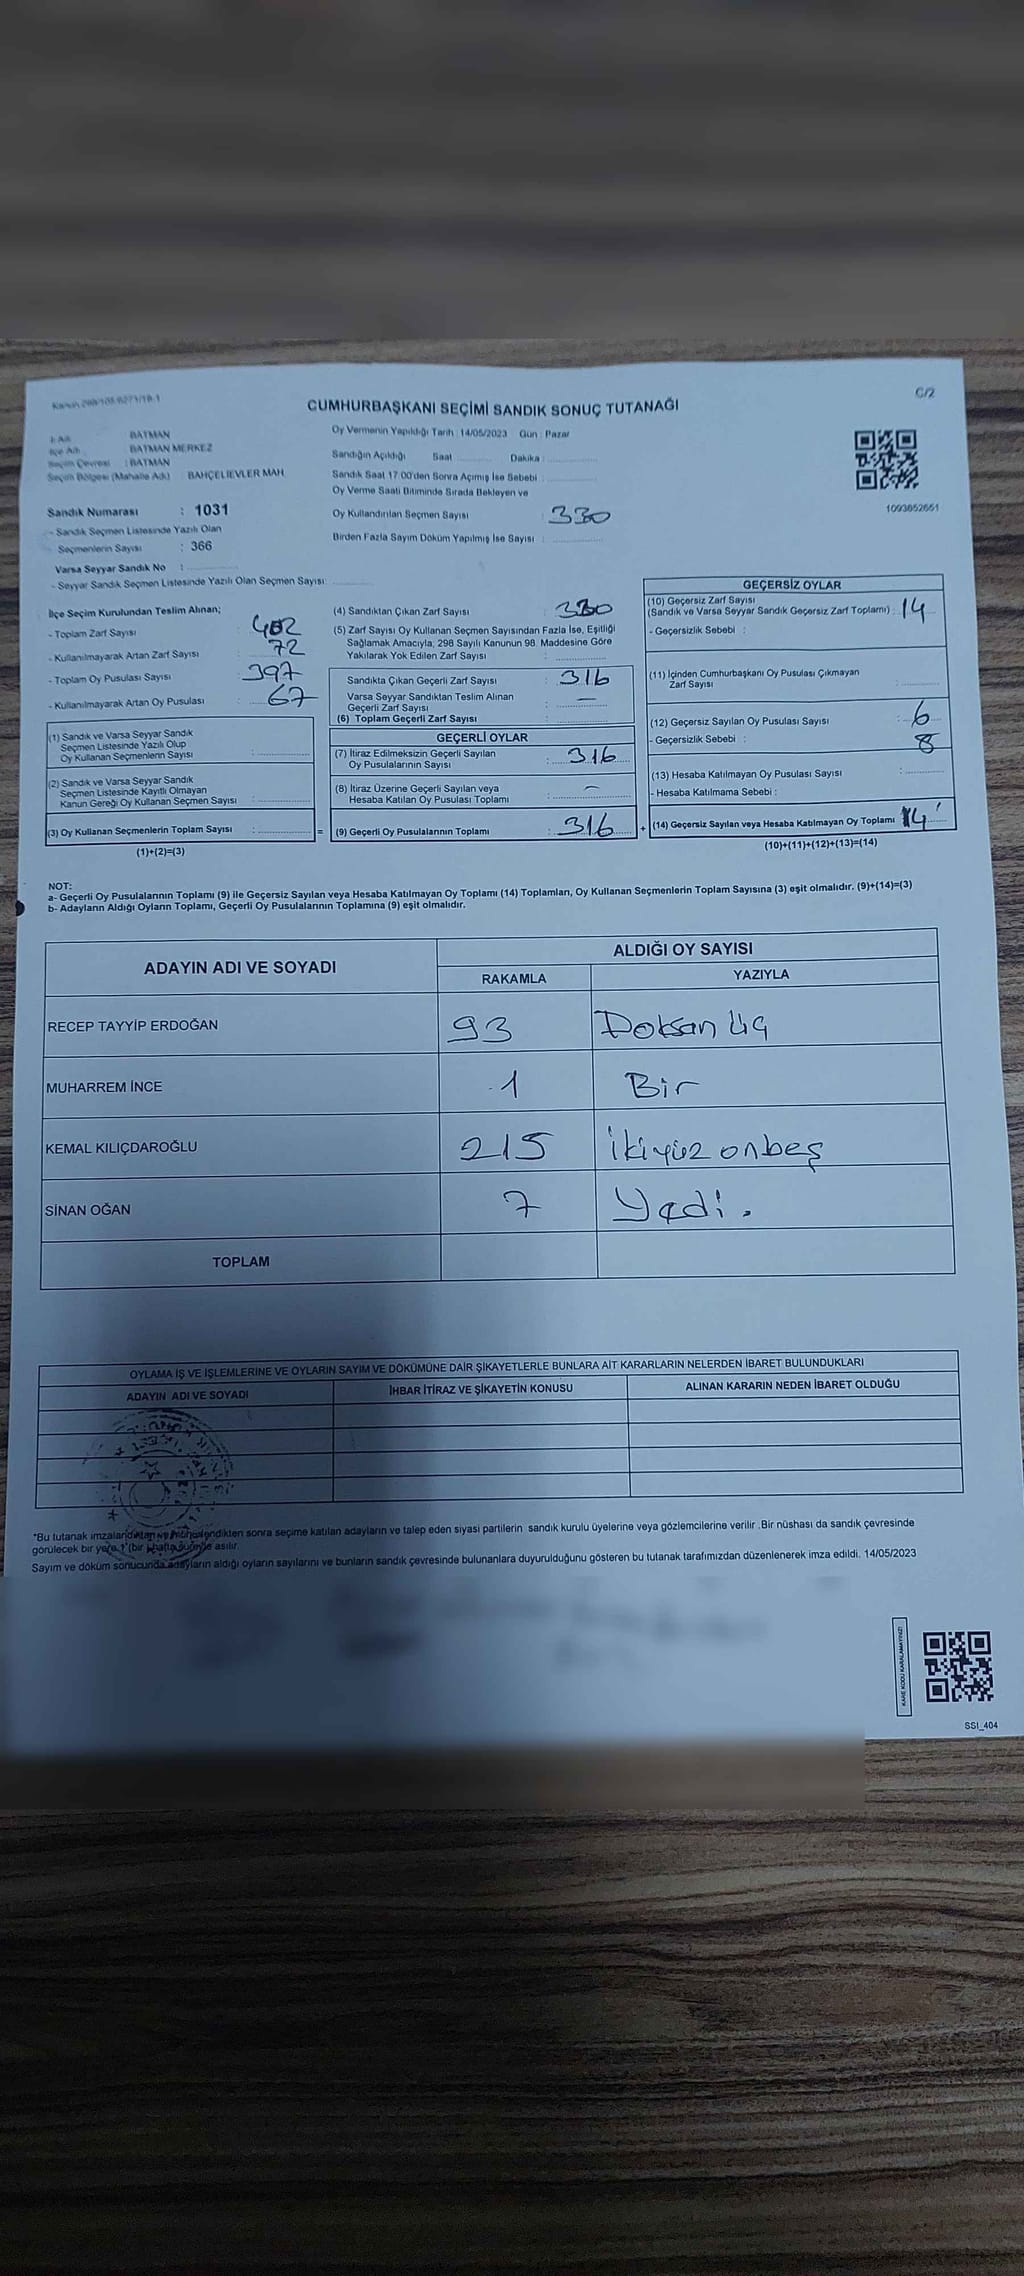 C/2
CUMHURBAŞKANI SEÇİMİ SANDIK SONUÇ TUTANAĞI
BATMAN
BATMAN MERKEZ
Seçim Çevresi : BATMAN
Seçim Bölgesi (Mahalle Adı) BAHÇELİEVLER MAH
Sandık Numarası : 1031
- Sandık Seçmen Listesinde Yazılı Olan
Seçmenlerin Sayısı : 366
Varsa Seyyar Sandık No :
- Seyyar Sandık Seçmen Listesinde Yazılı Olan Seçmen Sayısı :
Oy Vermenin Yapıldığı Tarih : 14/05/2023 Gün : Pazar
Sandığın Açıldığı Saat Dakika :
Sandık Saat 17:00'den Sonra Açımış İse Sebebi :
Oy Verme Saati Bitiminde Sırada Bekleyen ve
Oy Kullandırılan Seçmen Sayısı : 330
Birden Fazla Sayım Döküm Yapılmış İse Sayısı :
1093652651
İlçe Seçim Kurulundan Teslim Alınan;
- Toplam Zarf Sayısı : 402
- Kullanılmayarak Artan Zarf Sayısı : 72
- Toplam Oy Pusulası Sayısı : 397
- Kullanılmayarak Artan Oy Pusulası : 67
(1) Sandık ve Varsa Seyyar Sandık
Seçmen Listesinde Yazılı Olup
Oy Kullanan Seçmenlerin Sayısı :
(2) Sandık ve Varsa Seyyar Sandık
Seçmen Listesinde Kayıtlı Olmayan
Kanun Gereği Oy Kullanan Seçmen Sayısı :
(3) Oy Kullanan Seçmenlerin Toplam Sayısı :
(1)+(2)=(3)
(4) Sandıktan Çıkan Zarf Sayısı : 330
(5) Zarf Sayısı Oy Kullanan Seçmen Sayısından Fazla İse, Eşitliği
Sağlamak Amacıyla, 298 Sayılı Kanunun 98. Maddesine Göre
Yakılarak Yok Edilen Zarf Sayısı :
Sandıkta Çıkan Geçerli Zarf Sayısı : 316
Varsa Seyyar Sandıktan Teslim Alınan
Geçerli Zarf Sayısı : —
(6) Toplam Geçerli Zarf Sayısı :
GEÇERLİ OYLAR
(7) İtiraz Edilmeksizin Geçerli Sayılan
Oy Pusulalarının Sayısı : 316
(8) İtiraz Üzerine Geçerli Sayılan veya
Hesaba Katılan Oy Pusulası Toplamı : —
= (9) Geçerli Oy Pusulalarının Toplamı : 316 +
GEÇERSİZ OYLAR
(10) Geçersiz Zarf Sayısı
(Sandık ve Varsa Seyyar Sandık Geçersiz Zarf Toplamı) : 14
- Geçersizlik Sebebi :
(11) İçinden Cumhurbaşkanı Oy Pusulası Çıkmayan
Zarf Sayısı :
(12) Geçersiz Sayılan Oy Pusulası Sayısı : 6
- Geçersizlik Sebebi : 8
(13) Hesaba Katılmayan Oy Pusulası Sayısı :
- Hesaba Katılmama Sebebi :
(14) Geçersiz Sayılan veya Hesaba Katılmayan Oy Toplamı 14
(10)+(11)+(12)+(13)=(14)
NOT:
a- Geçerli Oy Pusulalarının Toplamı (9) ile Geçersiz Sayılan veya Hesaba Katılmayan Oy Toplamı (14) Toplamları, Oy Kullanan Seçmenlerin Toplam Sayısına (3) eşit olmalıdır. (9)+(14)=(3)
b- Adayların Aldığı Oyların Toplamı, Geçerli Oy Pusulalarının Toplamına (9) eşit olmalıdır.
ADAYIN ADI VE SOYADI
ALDIĞI OY SAYISI
RAKAMLA YAZIYLA
RECEP TAYYİP ERDOĞAN 93 Doksan üç
MUHARREM İNCE 1 Bir
KEMAL KILIÇDAROĞLU 215 ikiyüz onbeş
SİNAN OĞAN 7 Yedi.
TOPLAM
OYLAMA İŞ VE İŞLEMLERİNE VE OYLARIN SAYIM VE DÖKÜMÜNE DAİR ŞİKAYETLERLE BUNLARA AİT KARARLARIN NELERDEN İBARET BULUNDUKLARI
ADAYIN ADI VE SOYADI İHBAR İTİRAZ VE ŞİKAYETİN KONUSU ALINAN KARARIN NEDEN İBARET OLDUĞU
*Bu tutanak imzalandıktan ve mühürlendikten sonra seçime katılan adayların ve talep eden siyasi partilerin sandık kurulu üyelerine veya gözlemcilerine verilir. Bir nüshası da sandık çevresinde
görülecek bir yere 1 (bir) hafta süreyle asılır.
Sayım ve döküm sonucunda adayların aldığı oyların sayılarını ve bunların sandık çevresinde bulunanlara duyurulduğunu gösteren bu tutanak tarafımızdan düzenlenerek imza edildi. 14/05/2023
KARE KODU KARALAMAYINIZ!
SSI_404